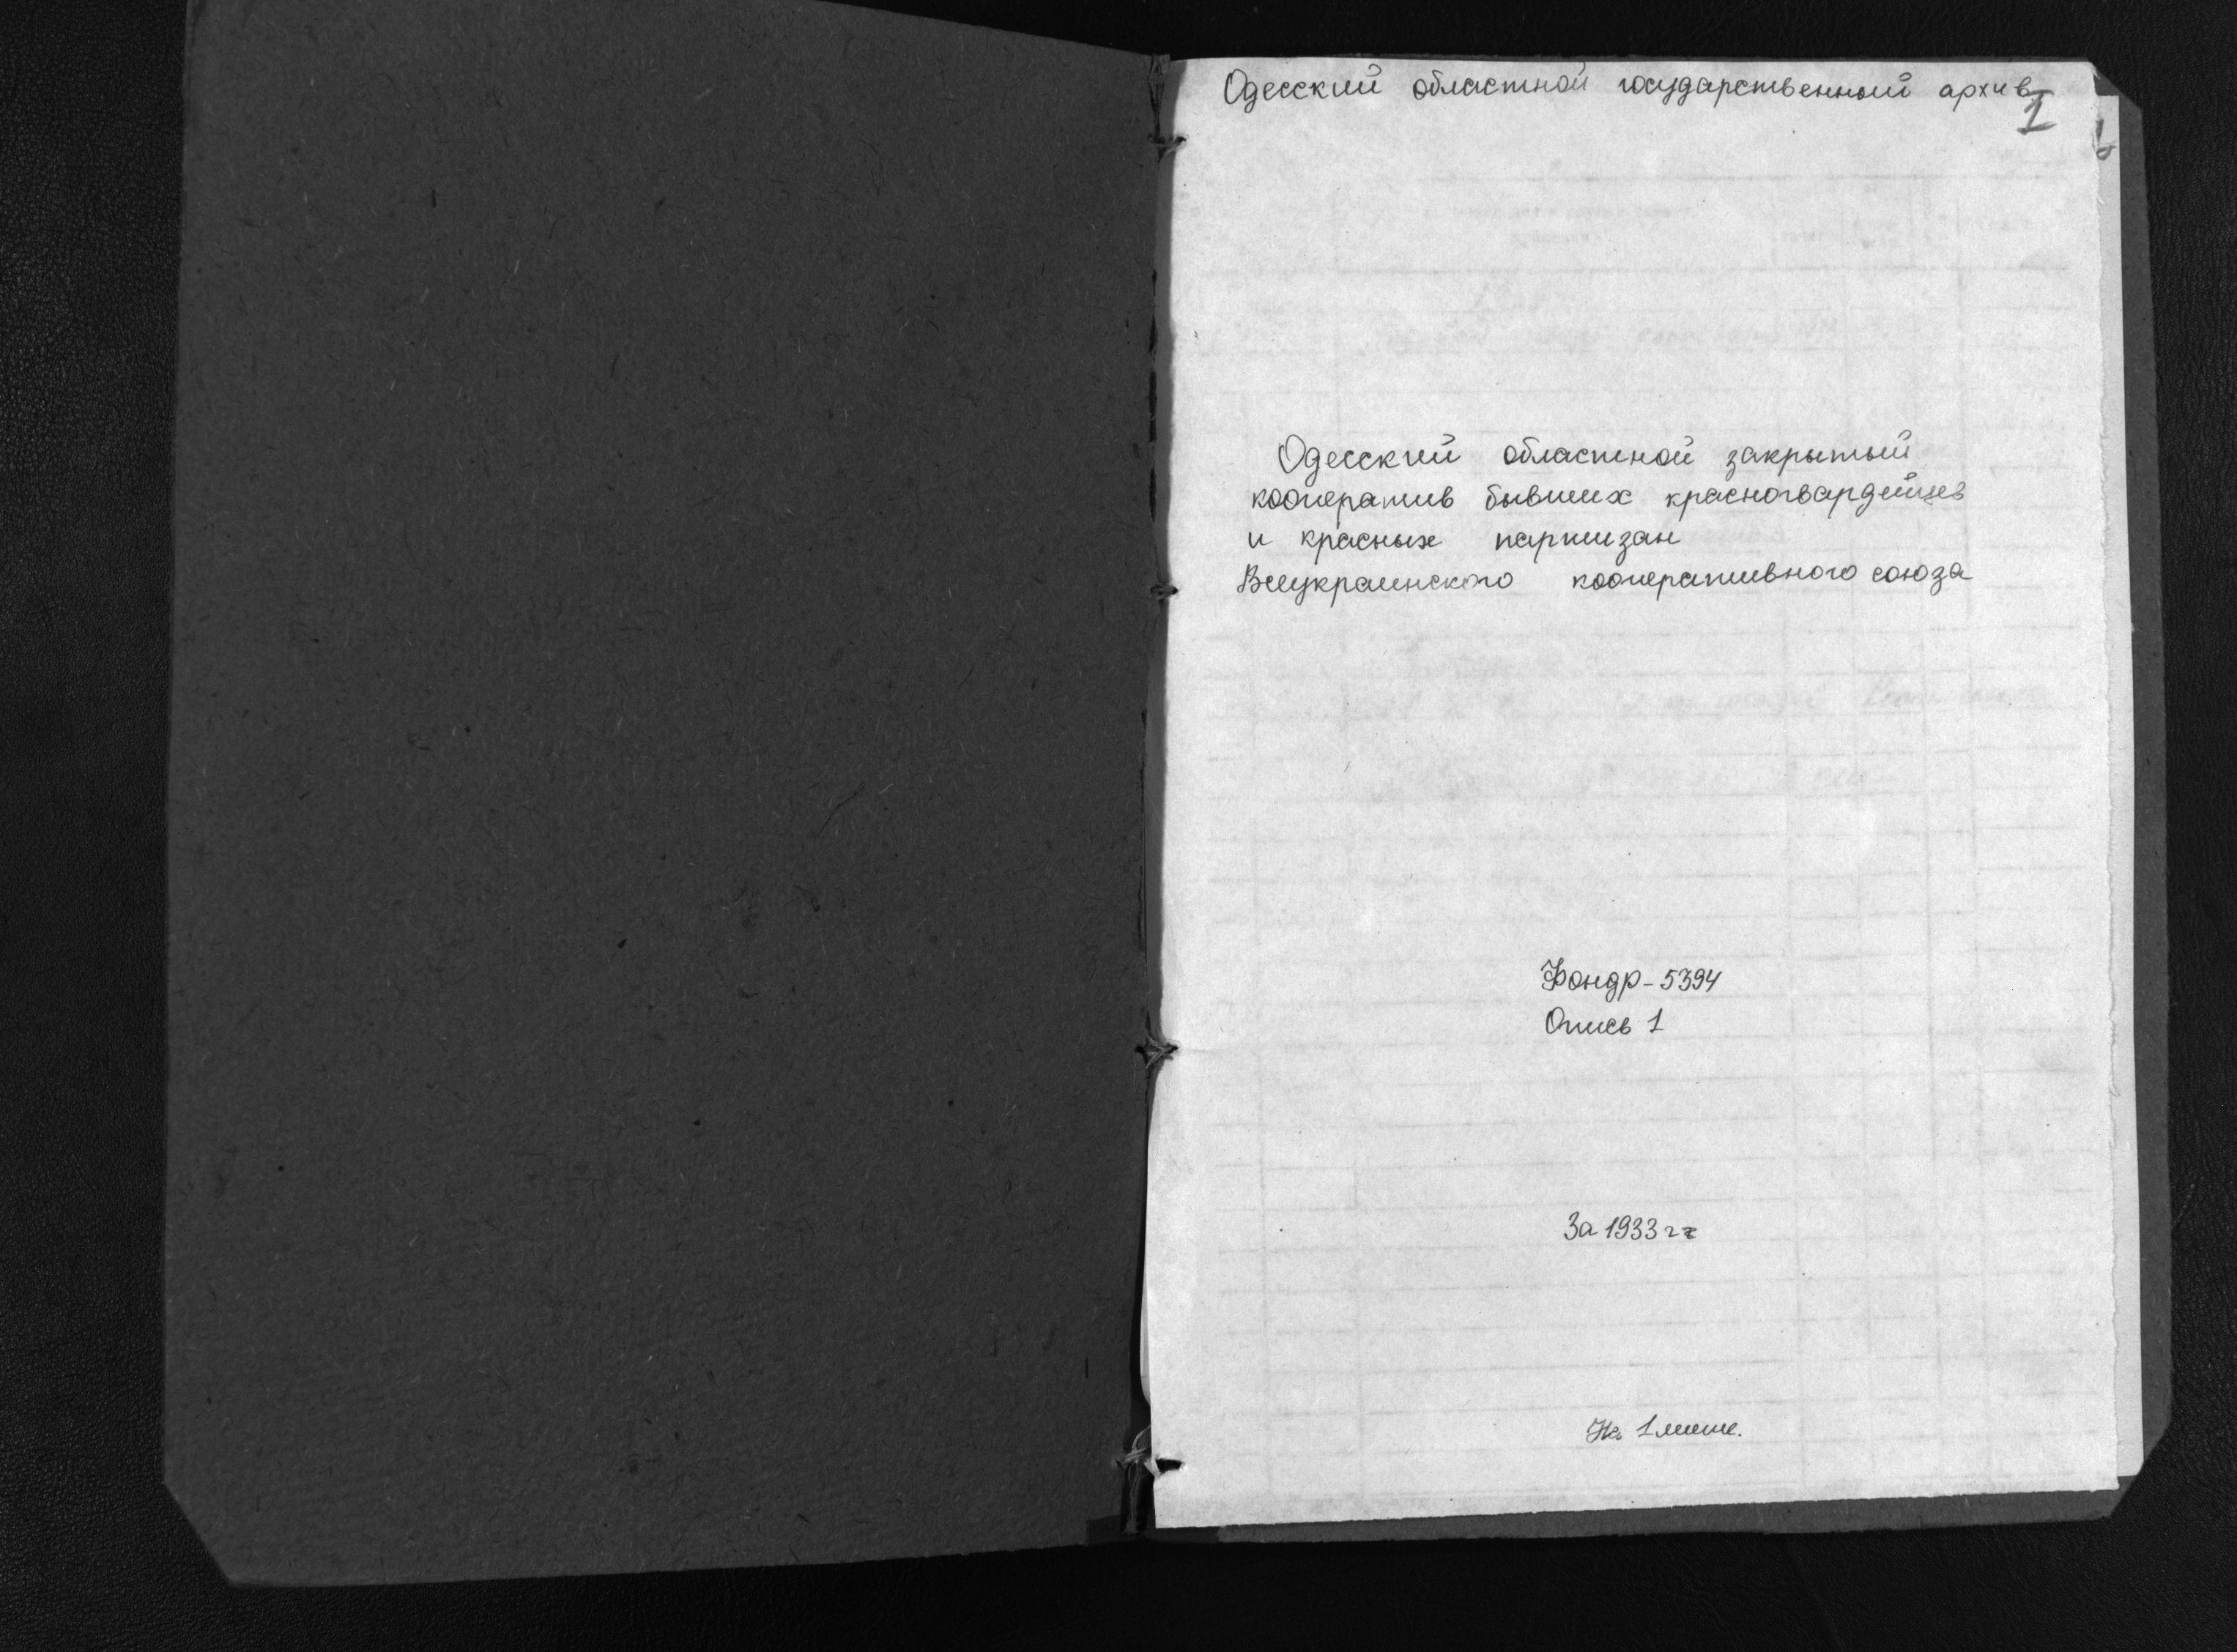 Одесский областной государственный архив
1
Одесский областной закрытый
кооператив бывших красногвардейцев
и красных партизан
Всеукраинского кооперативного союза
Фонд Р-5394
Опись 1
За 1933 г
На 1 листе.